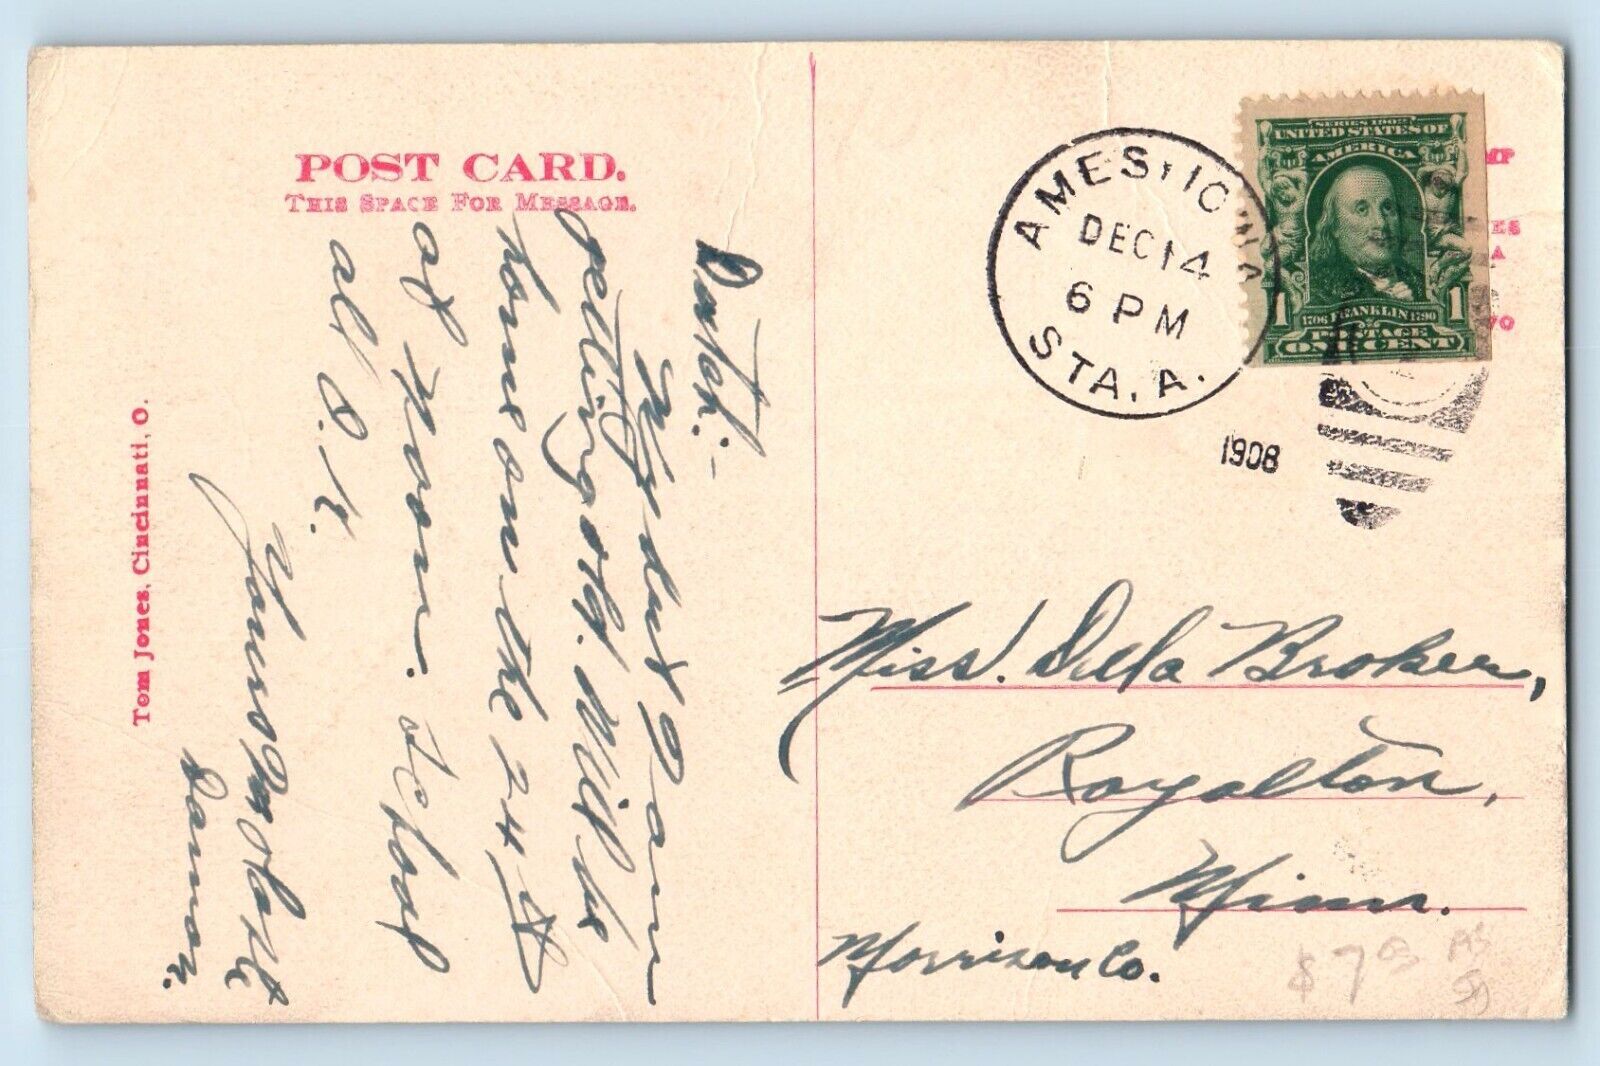 POST CARD.
THIS SPACE FOR MESSAGE.
Dontch:-
My but I am
getting old. Will be
home on the 24th
at Noon. I hope
all O.K.
Yours,
Damon.
Tom Jones, Cincinnati, O.
AMES, IOWA
DEC 14
6 PM
STA. A.
1908
SERIES 1902
UNITED STATES OF
AMERICA
1 1
1706 FRANKLIN 1790
POSTAGE
ONE CENT
MP
ES
A
Miss. Della Broker,
Royalton,
Minn.
Morrison Co.
$7